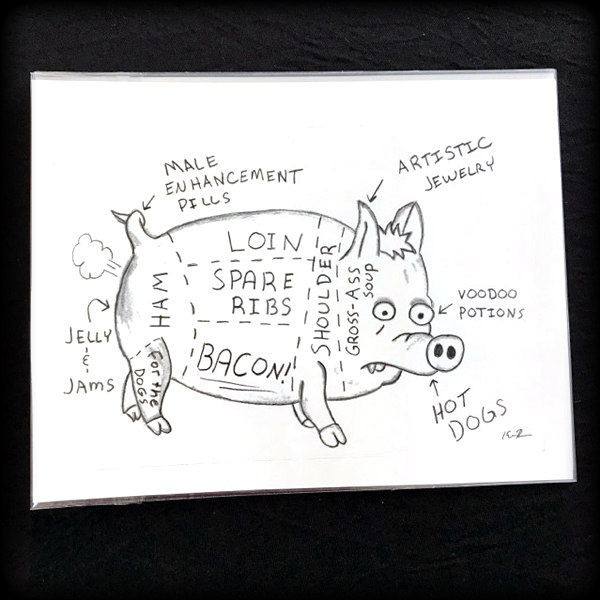 MALE
ENHANCEMENT
PILLS
ARTISTIC
JEWELRY
LOIN
SPARE
RIBS
BACON!
HAM
SHOULDER
GROSS-ASS
SOUP
VOODOO
POTIONS
JELLY
&
JAMS
FOR the
DOGS
HOT
DOGS